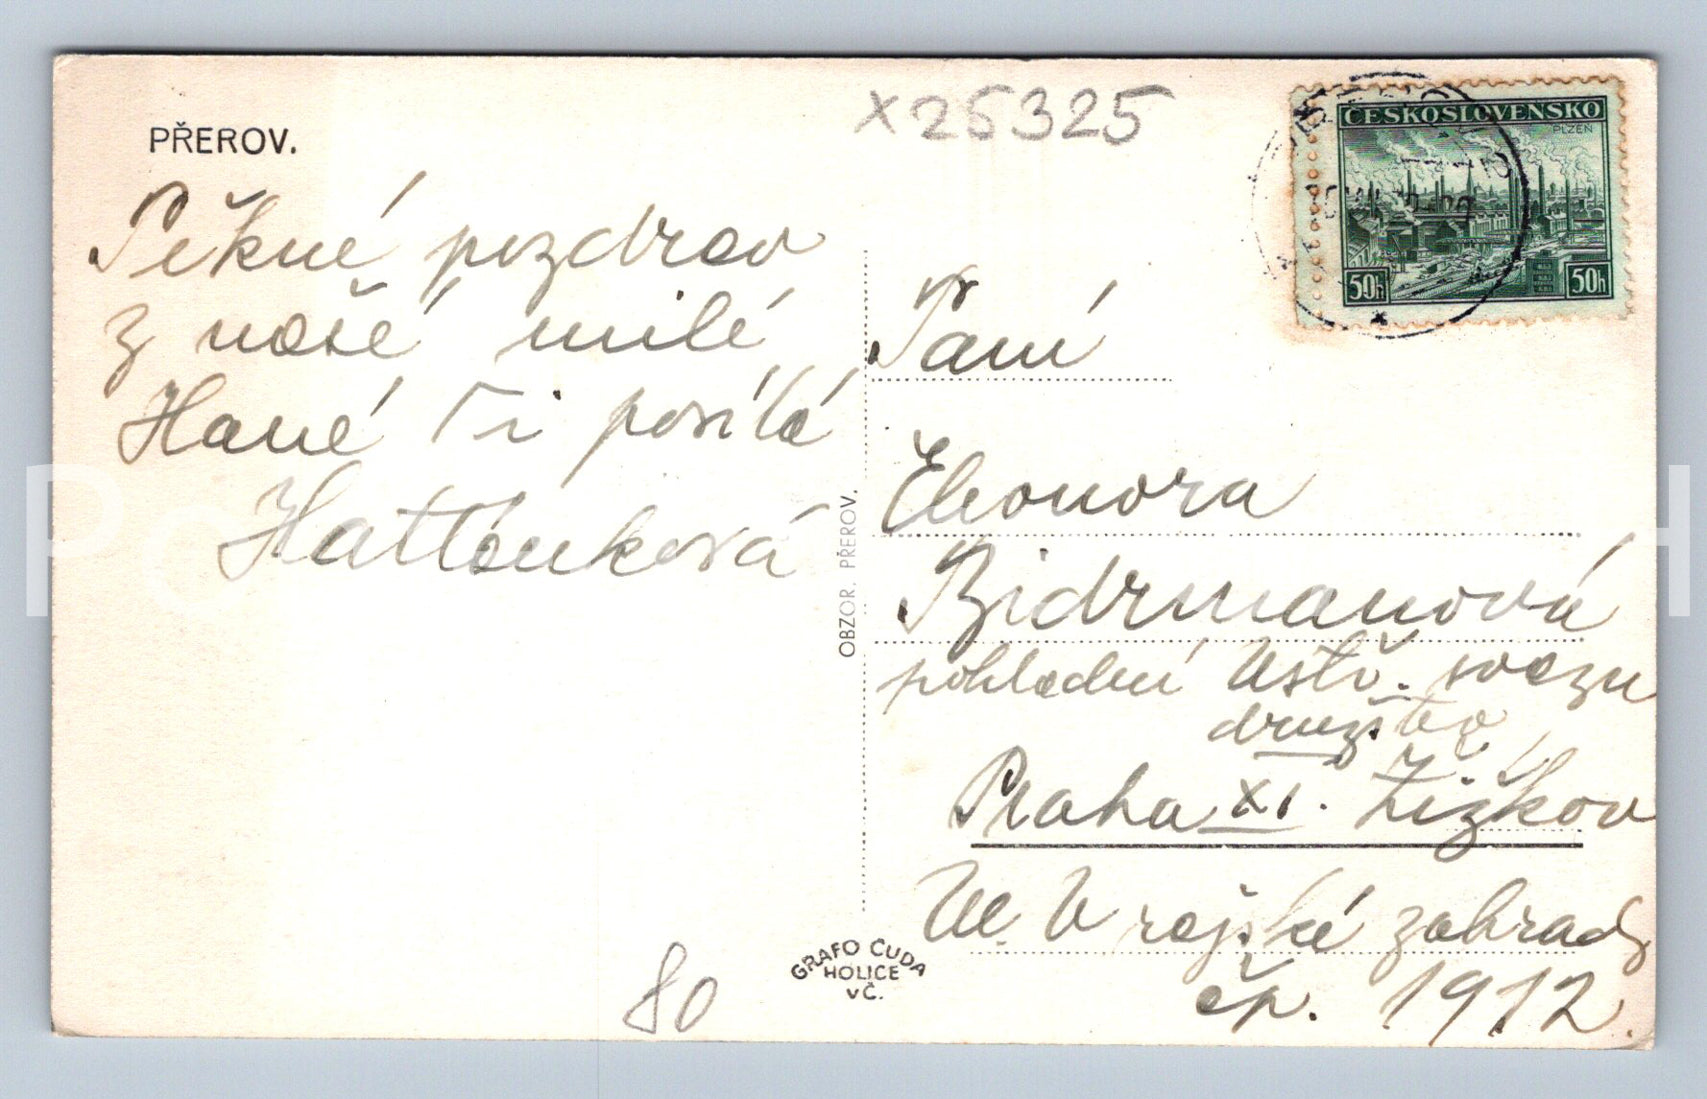 PŘEROV.
x25325
Pěkné pozdrav
z naší milé
Hané Ti posílá
Hatlónková
OBZOR, PŘEROV.
GRAFO ČUDA
HOLICE
v Č.
80
ČESKOSLOVENSKO
PLZEŇ
50h 50h
Paní
Eleonora
Bidrmanová
Ústř. svazu
družstev
Praha XI. Žižkov
Ve V rajské zahrady
čp. 1912.